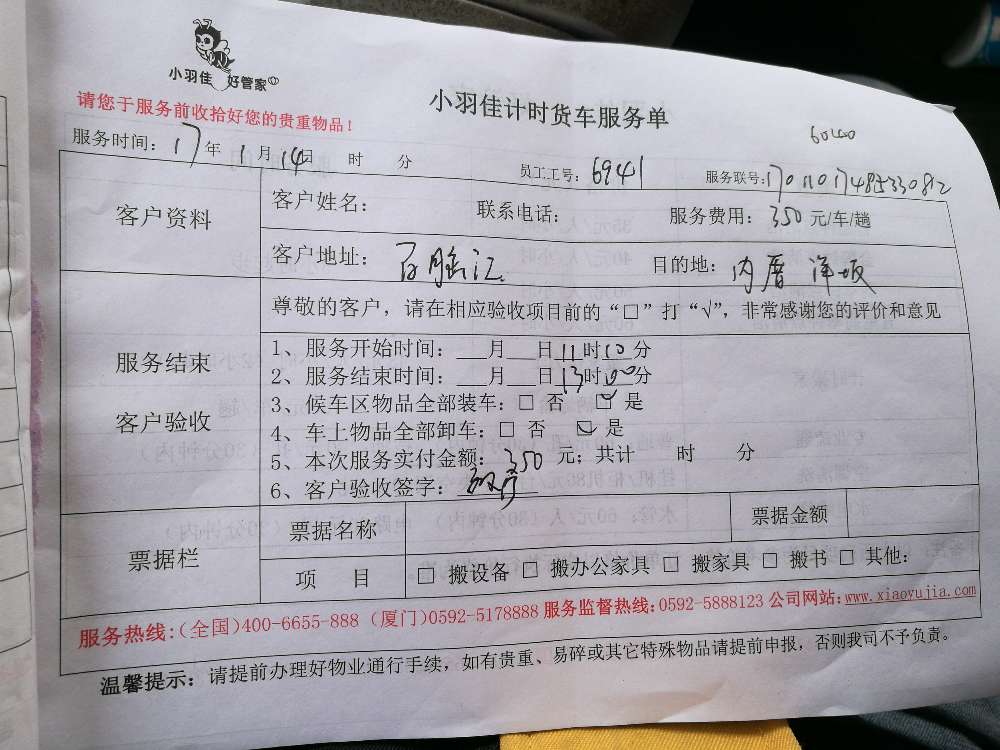 小羽佳 好管家
小羽佳计时货车服务单
请您于服务前收拾好您的贵重物品！
60400
服务时间：17年1月14日 时 分 员工工号：6941 服务联号：
客户资料
客户姓名： 联系电话： 服务费用：350元/车/趟
客户地址：百脑汇 目的地：内厝 洋坂
尊敬的客户，请在相应验收项目前的“□”打“√”，非常感谢您的评价和意见
服务结束
客户验收
1、服务开始时间：___月___日11时10分
2、服务结束时间：___月___日13时00分
3、候车区物品全部装车：□ 否 ☑ 是
4、车上物品全部卸车：□ 否 ☑ 是
5、本次服务实付金额：350 元；共计 时 分
6、客户验收签字：
票据栏
票据名称 票据金额
项 目 □ 搬设备 □ 搬办公家具 □ 搬家具 □ 搬书 □ 其他：
服务热线：(全国)400-6655-888 (厦门)0592-5178888 服务监督热线：0592-5888123 公司网站：www.xiaoyujia.com
温馨提示：请提前办理好物业通行手续，如有贵重、易碎或其它特殊物品请提前申报，否则我司不予负责。